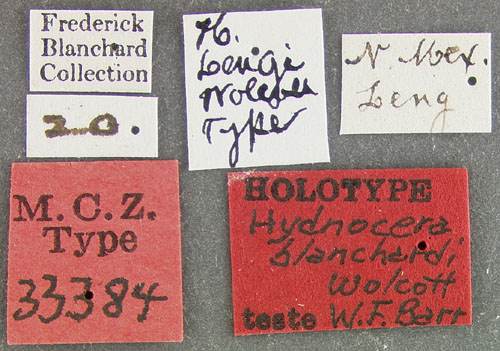 Frederick
Blanchard
Collection
20.
H.
Lengi
Wolcott
Type
N. Mex.
Leng
M.C.Z.
Type
33384
HOLOTYPE
Hydnocera
blanchardi
Wolcott
teste W.F. Barr